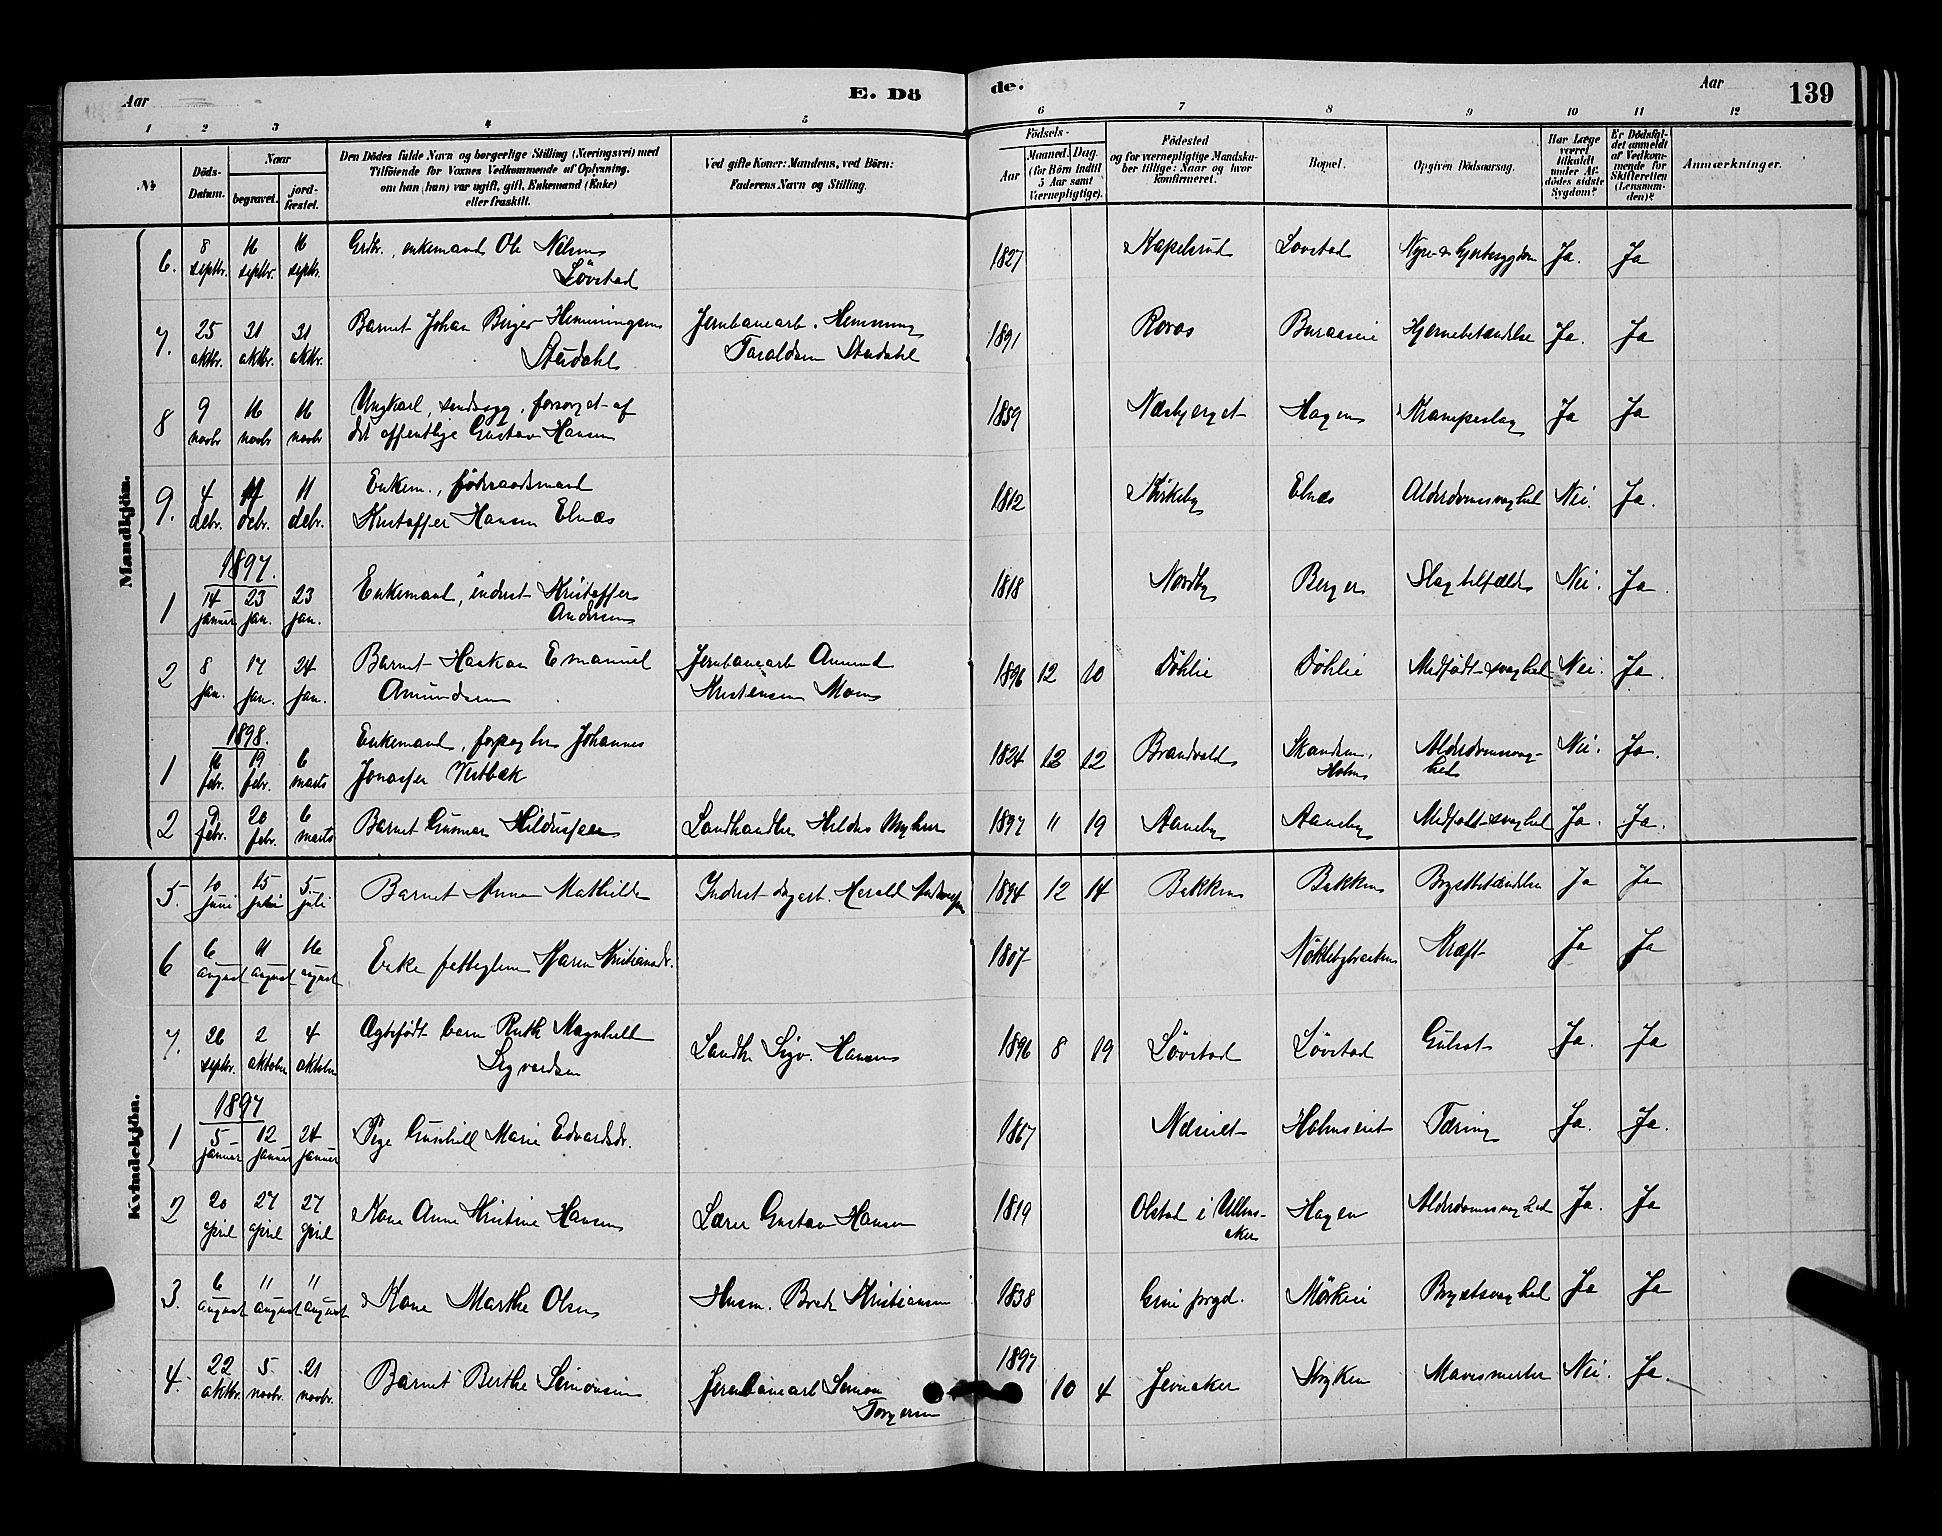 Aar
E. Dö
de.
Aar
139
1 2 3 4 5 6 7 8 9 10 11 12
№
Döds-Datum.
Naar
begravet.
jord-fæstet.
Den Dödes fulde Navn og borgerlige Stilling (Næringsvei) med
Tilföiende for Voxnes Vedkommende af Oplysning,
om han (hun) var ugift, gift, Enkemand (Enke)
eller fraskilt.
Ved gifte Koner: Mandens, ved Börn:
Faderens Navn og Stilling.
Födsels-
Aar
Maaned. Dag.
(for Börn indtil
5 Aar samt
Værnepligtige).
Födested
og for værnepligtige Mandska-
ber tillige: Naar og hvor
konfirmeret.
Bopæl.
Opgiven Dödsaarsag.
Har Læge
været
tilkaldt
under Af-
dödes sidste
Sygdom?
Er Dödsfal-
det anmeldt
af Vedkom-
mende for
Skifteretten
(Lensman-
den)?
Anmærkninger.
Mandkjön.
6. 8 septbr. 16 septbr. 16 septbr. Grdbr., enkemand Ole Nilsen
Løvstad 1827 Kapelsrud Lovstad Nyre- & Hjertesygdom Ja. Ja
7. 25 oktbr. 31 oktbr. 31 oktbr. Barnet Johan Birger Hemmingsen
Studahl Jernbanearb. Hemming
Taraldsen Studahl 1891 Roros Buraaseie Hjernebetændelse Ja. Ja
8 9 novbr 16 novbr 16 novbr Ungkarl, sindssyg, forsørget af
det offentlige Gustav Hansen 1859 Næsbjerget Hagen Krampeslag Ja Ja
9. 4 debr. 11 debr. 11 debr. Enkem., föderaadsmand
Kristoffer Hansen Elnæs 1812 Kirkeby Elnæs Alderdomssvaghed Nei. Ja.
1897.
1 14 januar 23 jan. 23 jan. Enkemand, inderst Kristoffer
Andersen 1818 Nordby Berger Slagtilfælde Nei. Ja.
2 8 jan. 17 jan. 24 jan. Barnet Haakon Emanuel
Amundsen Jernbanearb Amund
Kristensen Moen 1896 12 10 Döhlie Döhlie Medfödt svaghed Nei. Ja.
1898.
1 16 febr. 19 febr. 6 marts Enkemand, Johannes
Vestbæk 1824 12 12 Brandvold Skandsen,
Holm Alderdomssvag-
hed Nei. Ja.
2 9 febr. 20 febr. 6 marts Barnet Gunnar Landhandler Myhrer 1897 11 19 Aaneby Aaneby Medfødt svaghed Ja. Ja.
Kvindekjön.
5. 10 juni 15 juni 5 juli Barnet Anna Mathilde Inderst dagarb. Herald 1894 12 14 Bakken Bakken Brystbetændelse Ja Ja
6 6 august 11 august 16 august Enke fattiglem Maren Kristiansdr. 1807 Kræft Ja Ja
7. 26 septbr. 2 oktober 4 oktober Ægtefödt barn Ruth Magnhild
Sigvardsen Landh. Sigv. Hansen 1896 8 19 Lövstad Lövstad Gulsot Ja. Ja
1897
1 5 januar 12 januar 24 januar Pige Gunhild Marie Edvardsdr. 1867 Næsiet Holmseiet Tæring Ja. Ja.
2 20 april 27 april 27 april Kone Anne Kristine Hansen Lærer Gustav Hansen 1819 Olstad i Ullens-
aker Hagen Alderdomssvaghed Ja. Ja
3. 6 august 11 august 11 august Kone Marthe Olsen Husm. Brede Kristiansen 1838 Eini prgd. Mörkeie Brystsvaghed Ja Ja
4. 22 oktbr. 5 novbr. 21 novbr. Barnet Berthe Simonsen Jernbanearb Simon
Torgersen 1897 10 4 Jevnaker Stryken Mavesmerter Nei. Ja.